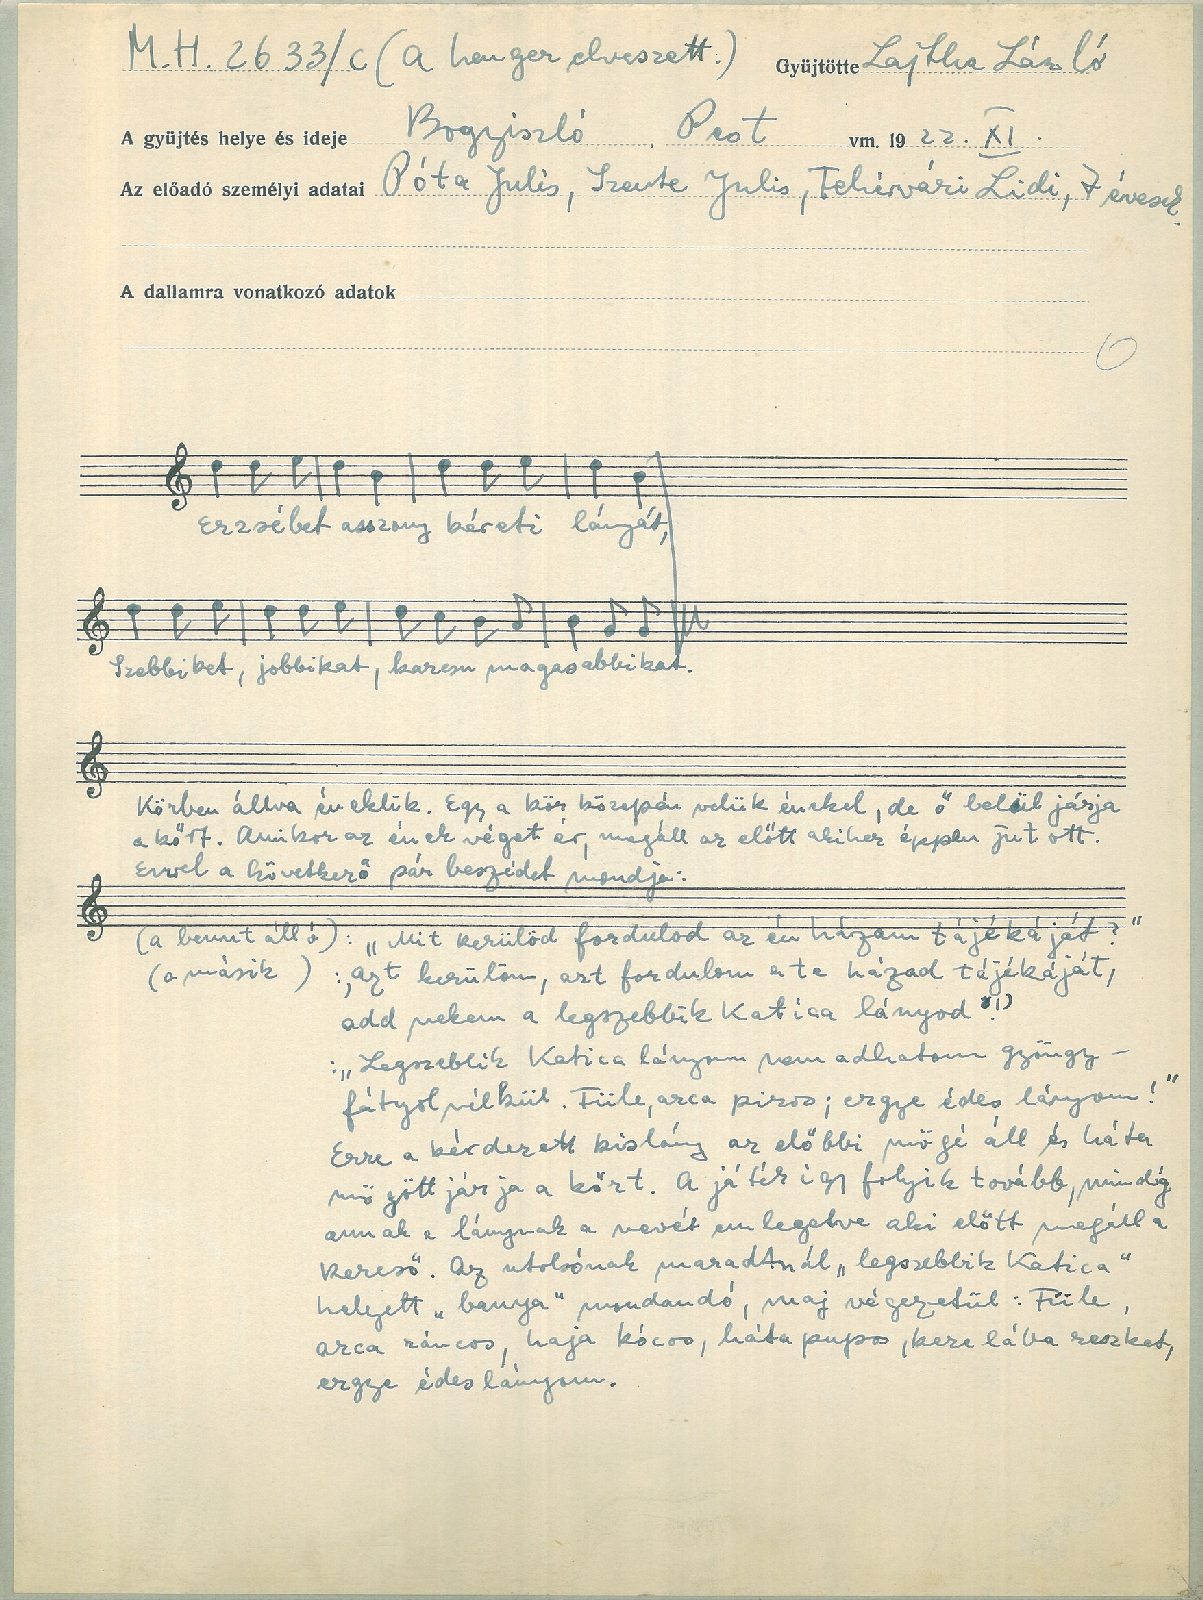 M.H. 2633/c (A henger elveszett.) Gyüjtötte Lajtha László
A gyüjtés helye és ideje Bogyiszló, Pest vm. 1922. XI.
Az előadó személyi adatai Póta Julis, Szente Julis, Fehérvári Lidi, 7 évesek.
A dallamra vonatkozó adatok
Erzsébet asszony kéreti lányát,
Szebbiket, jobbikat, karcsu magasabbikat.
Körben állva éneklik. Egy a kör közepén velük énekel, de ő belül járja
a kört. Amikor az ének véget ér, megáll az előtt akihez éppen jutott.
Evvel a következő párbeszédet mondja:
(a bennt álló): „Mit kerülöd fordulod az én házam tájékáját?"
(a másik ) : „Azt kerülöm, azt fordulom a te házad tájékáját,
add nekem a legszebbik Katica lányod"!)
: „Legszebbik Katica lányom nem adhatom gyöngy-
fátyol nélkül. Füle, arca piros; ergye édes lányom!"
Erre a kérdezett kislány az előbbi mögé áll és háta
mögött járja a kört. A játék igy folyik tovább, mindég
annak a lánynak a nevét emlegetve aki előtt megáll a
kereső. Az utolsónak maradtnál „legszebbik Katica"
helyett „banya" mondandó, maj végezetül: Füle,
arca ráncos, haja kócos, háta pupos, keze lába reszket,
ergye édes lányom.